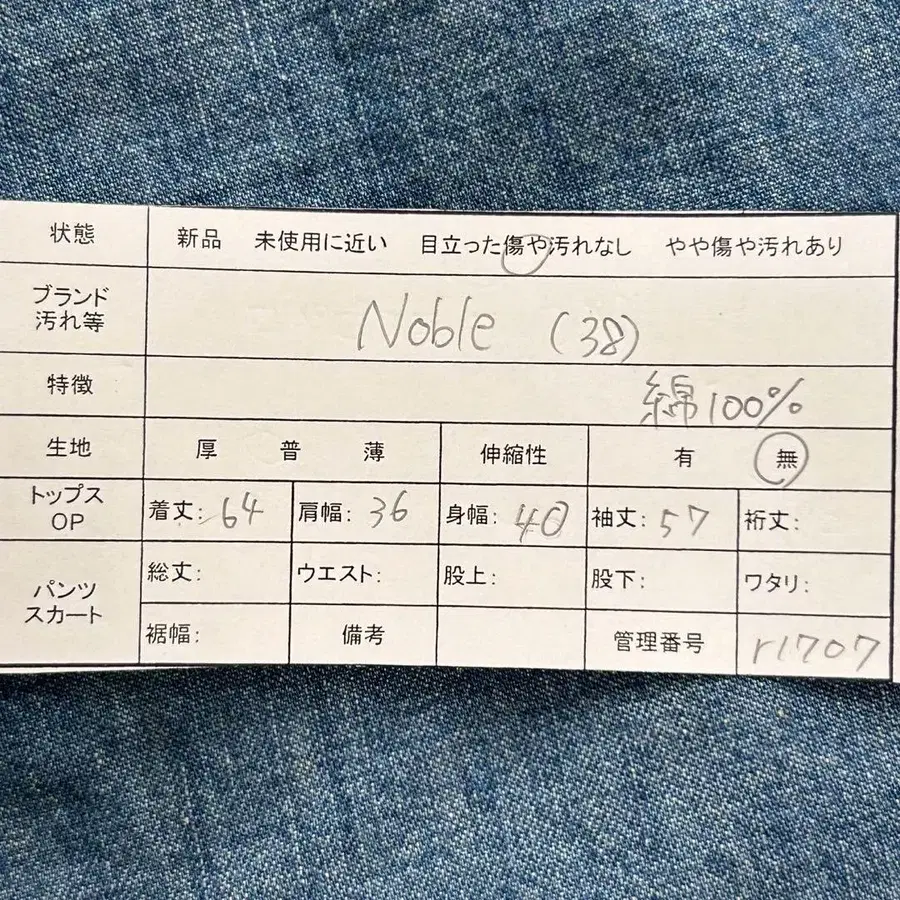 状態 新品 未使用に近い 目立った傷や汚れなし やや傷や汚れあり
ブランド
汚れ等
Noble (38)
特徴 綿100%
生地 厚 普 薄 伸縮性 有 無
トップス
OP
着丈: 64 肩幅: 36 身幅: 袖丈: 57 裄丈:
パンツ
スカート
総丈: ウエスト: 股上: 股下: ワタリ:
裾幅: 備考 管理番号 r1707